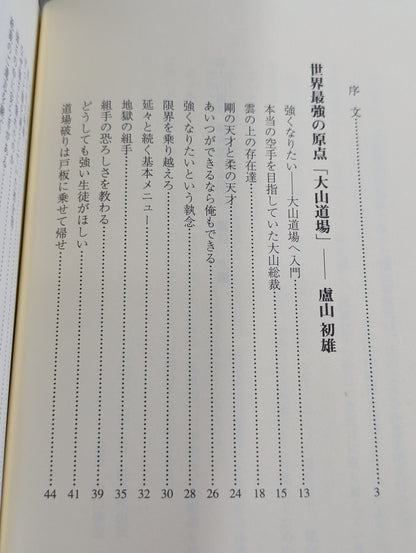 序 文 3
世界最強の原点「大山道場」── 盧山 初雄
強くなりたい──大山道場へ入門 13
本当の空手を目指していた大山総裁 15
雲の上の存在達 18
剛の天才と柔の天才 24
あいつができるなら俺もできる 26
強くなりたいという執念 28
限界を乗り越えろ 30
延々と続く基本メニュー 32
地獄の組手 35
組手の恐ろしさを教わる 39
どうしても強い生徒がほしい 41
道場破りは戸板に乗せて帰せ 44